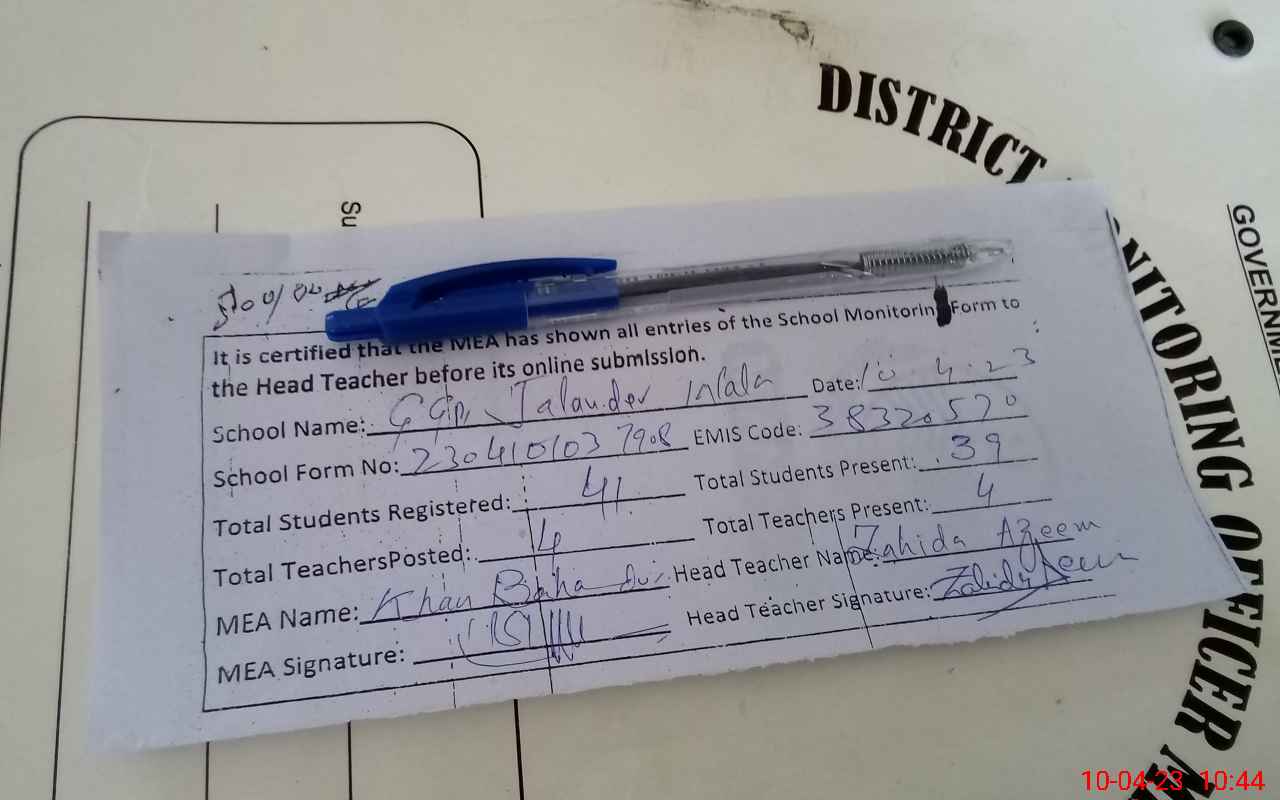 DISTRICT
MONITORING OFFICER
GOVERNME
Su
It is certified that the MEA has shown all entries of the School Monitoring Form to
the Head Teacher before its online submission.
School Name: Jalander Date: 10.4.23
School Form No: 230410103 7908 EMIS Code: 38320570
Total Students Registered: 41 Total Students Present: 39
Total TeachersPosted: 4 Total Teachers Present: 4
MEA Name: Khan Head Teacher Name: Zahida Azeem
MEA Signature: Head Teacher Signature:
10-04-23 10:44